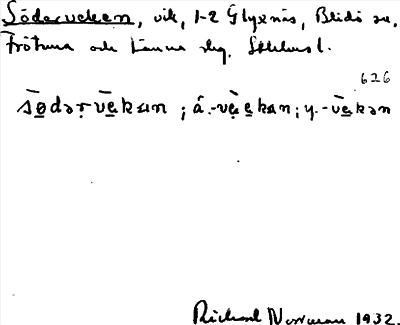 Söderveken, vik, 1-2 Glyxnäs, Blidö sn,
Frötuna och Länna slg. Sthlms l.
626
sø̄dərvēkan ; ä.-vēekan; y.-vēkən
Richard Norrman 1932.